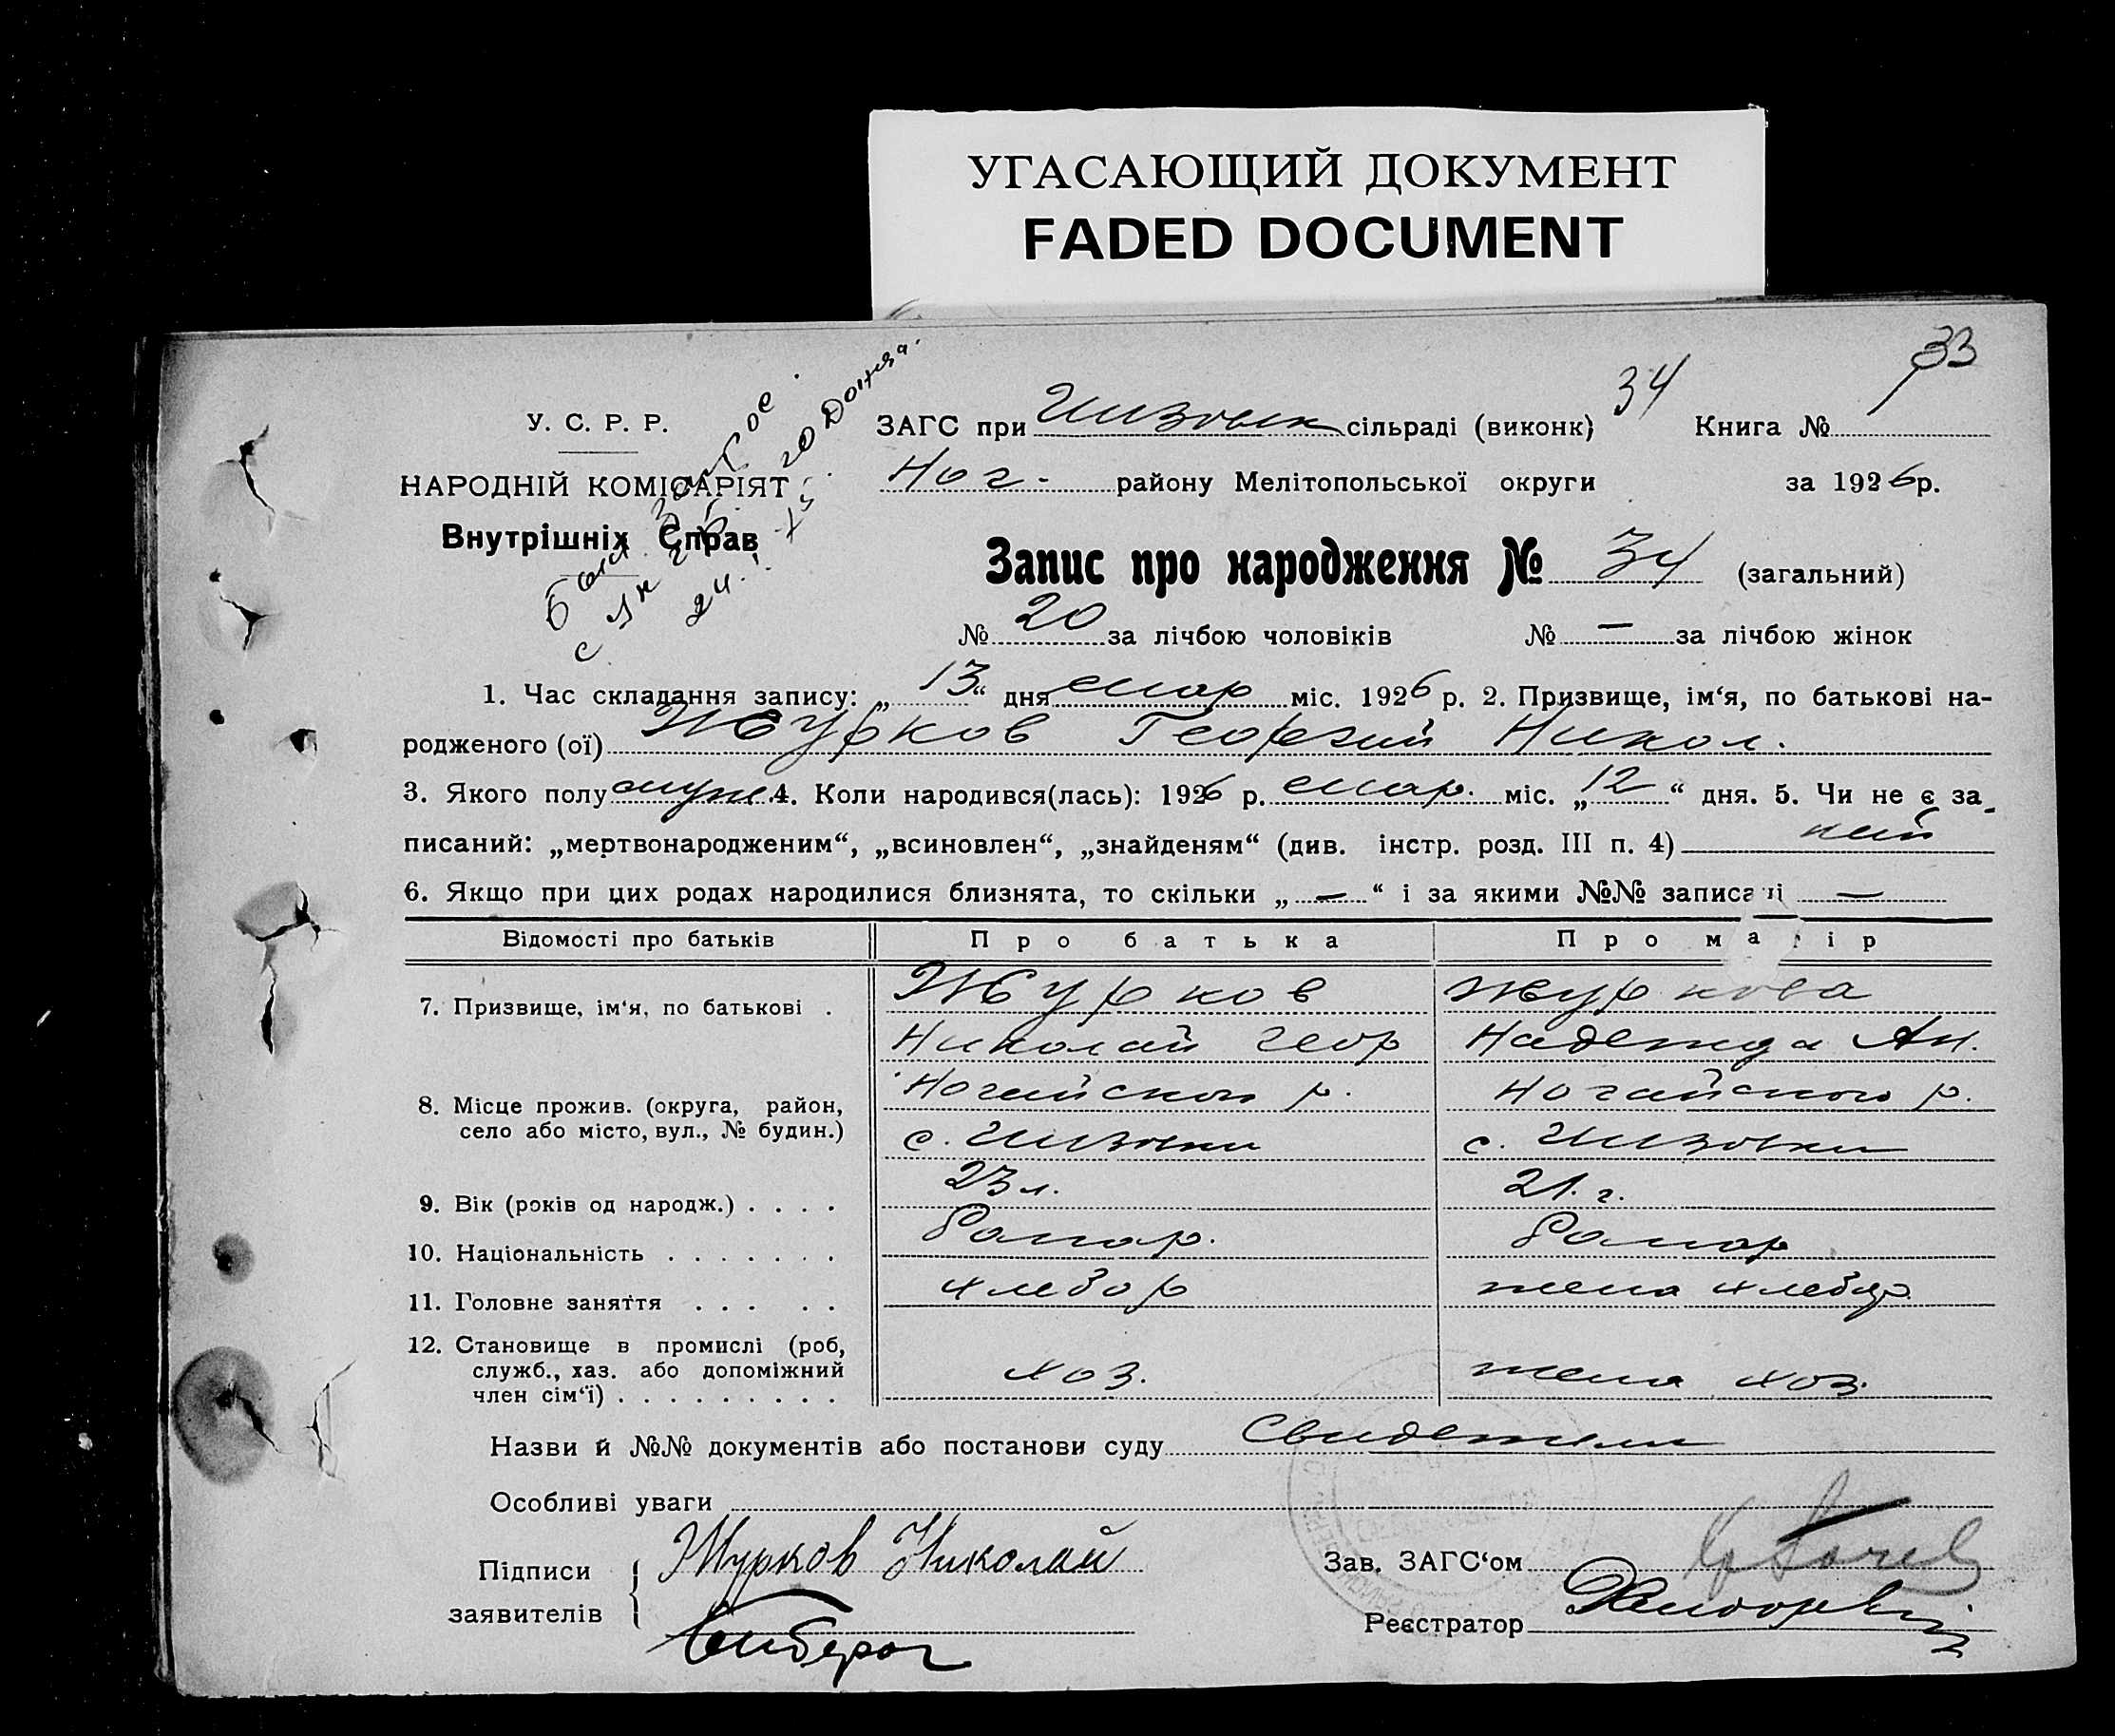 УГАСАЮЩИЙ ДОКУМЕНТ
FADED DOCUMENT
33
34
У. С. Р. Р.
НАРОДНІЙ КОМІСАРІЯТ
Внутрішніх Справ
ЗАГС при сільраді (виконк)
Книга № 1
Ног. району Мелітопольської округи
за 1926 р.
Запис про народження № 34 (загальний)
№ 20 за лічбою чоловіків № — за лічбою жінок
1. Час складання запису: „13“ дня мар міс. 1926 р. 2. Призвище, ім‘я, по батькові на-
родженого (ої) Журков Георгий Никол.
3. Якого полу муж. 4. Коли народився(лась): 1926 р. мар. міс. „12“ дня. 5. Чи не є за-
писаний: „мертвонародженим“, „всиновлен“, „знайденям“ (див. інстр. розд. III п. 4)
6. Якщо при цих родах народилися близнята, то скільки „—“ і за якими №№ записані —
Відомості про батьків Про батька Про матір
7. Призвище, ім‘я, по батькові . Журков Журкова
Николай Геор Надежда Ан.
8. Місце прожив. (округа, район, Ногайского р. Ногайского р.
село або місто, вул., № будин.) с. с.
9. Вік (років од народж.) . . . . 23 л. 21. г.
10. Національність . . . . . . .
11. Головне заняття . . . . . хлебор жена хлебор.
12. Становище в промислі (роб,
служб., хаз. або допоміжний хоз. жена хоз.
член сім‘ї) . . . . . . . . .
Назви й №№ документів або постанови суду Свидетели
Особливі уваги
Підписи Журков Николай
заявителів
Зав. ЗАГС‘ом
Реєстратор